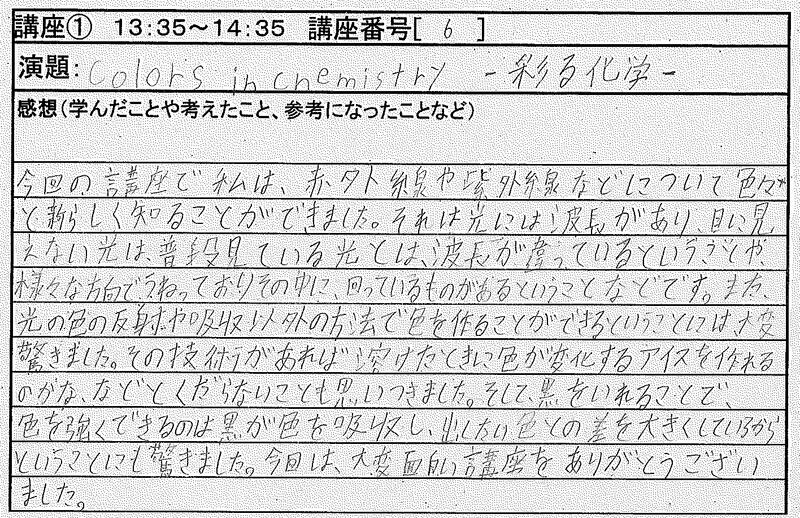 講座① 13:35～14:35 講座番号[ 6 ]
演題: Colors in chemistry －彩る化学－
感想(学んだことや考えたこと、参考になったことなど)
今回の講座で私は、赤外線や紫外線などについて色々
と新しく知ることができました。それは光には波長があり、目に見
えない光は、普段見ている光とは、波長が違っているということや、
様々な方向でうねっておりその中に、回っているものがあるということなどです。また、
光の色の反射や吸収以外の方法で色を作ることができるということには、大変
驚きました。その技術があれば溶けたときに色が変化するアイスを作れる
のかな、などとくだらないことも思いつきました。そして、黒をいれることで、
色を強くできるのは黒が色を吸収し、出したい色との差を大きくしているから
ということにも驚きました。今回は、大変面白い講座をありがとうござい
ました。